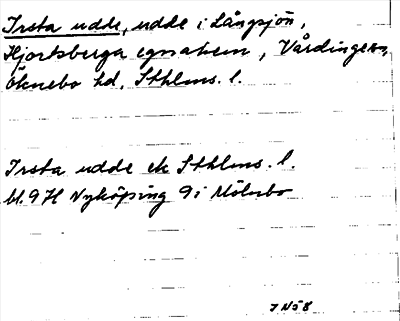 Irsta udde, udde i Långsjön,
Hjortsberga egnahem, Vårdinge sn,
Öknebo hd, Sthlms. l.
Irsta udde ek Sthlms. l.
bl. 9H Nyköping 9i Mölnbo
7 N58